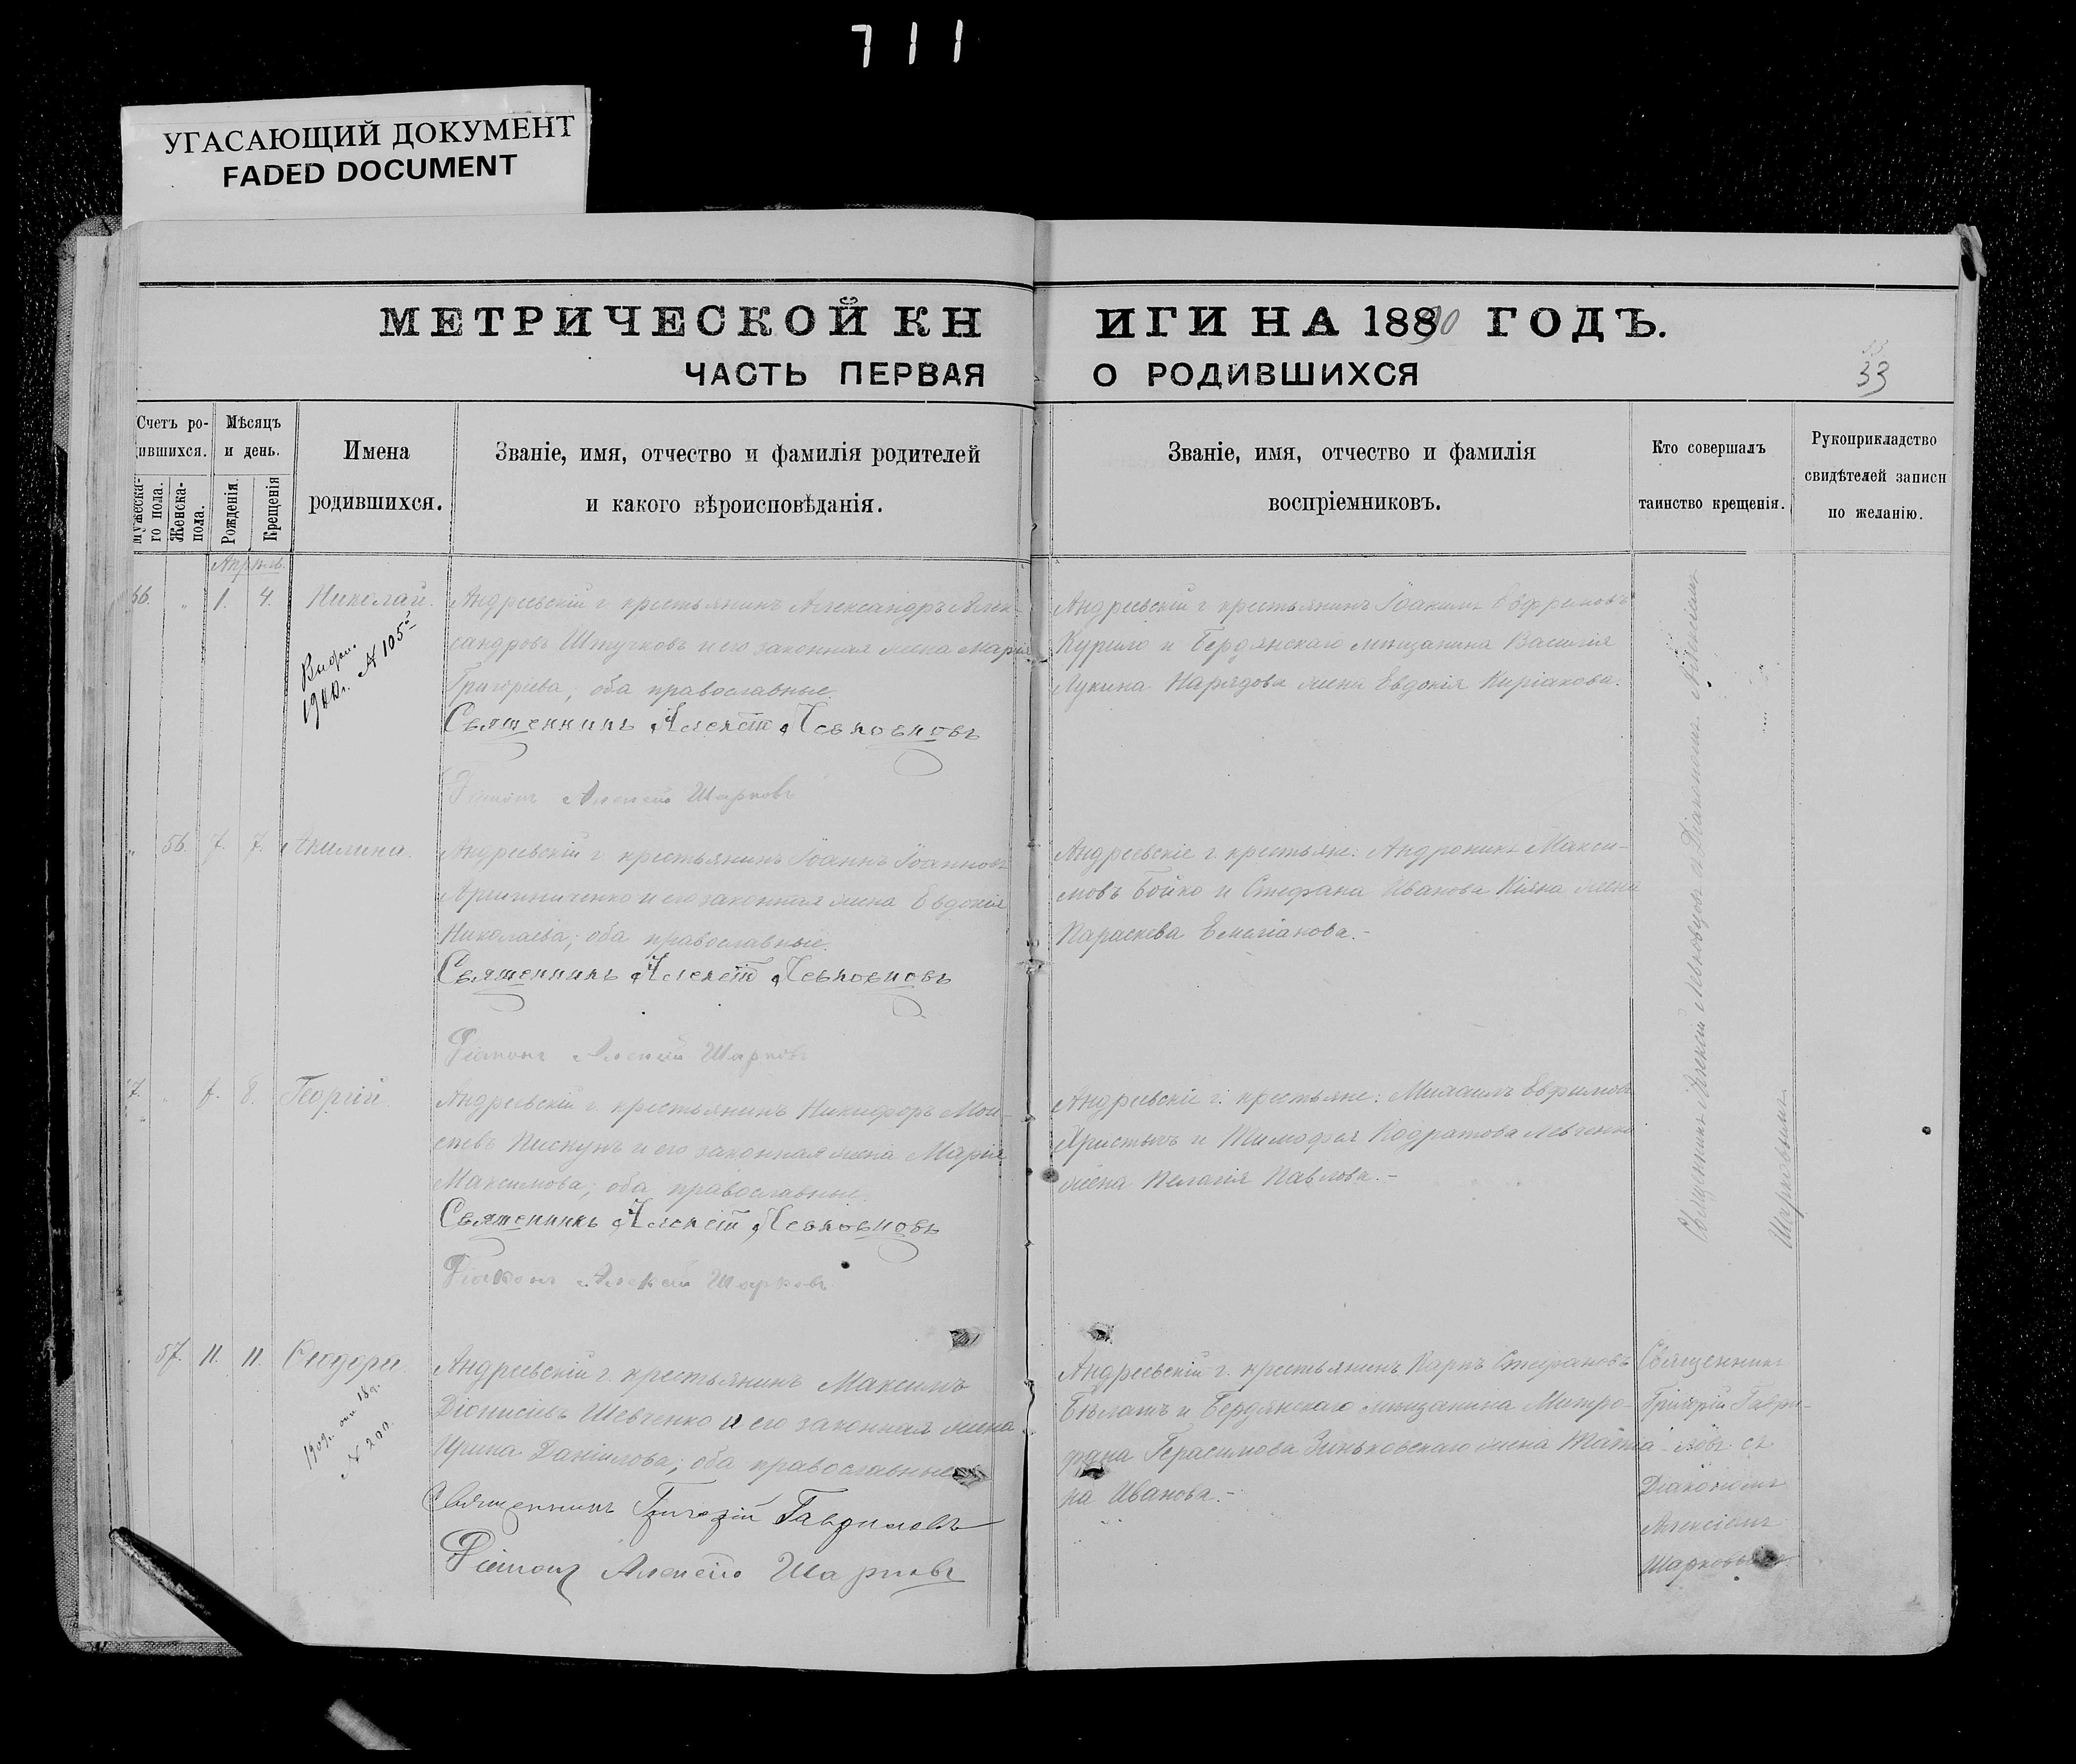 711
УГАСАЮЩИЙ ДОКУМЕНТ
FADED DOCUMENT
МЕТРИЧЕСКОЙ КН
ИГИ НА 18890 ГОДЪ.
ЧАСТЬ ПЕРВАЯ
О РОДИВШИХСЯ
33
Счетъ ро-
дившихся.
Мужеска-
го пола.
Женска-
пола.
Мѣсяцъ
и день.
Рожденія.
Крещенія
Имена
родившихся.
Званіе, имя, отчество и фамилія родителей
и какого вѣроисповѣданія.
Званіе, имя, отчество и фамилія
воспріемниковъ.
Кто совершалъ
таинство крещенія.
Рукоприкладство
свидѣтелей записи
по желанію.
Апрѣль.
56. " 1. 4. Николай.
№ 105
Андреевскій г. крестьянинъ Александръ Алек-
сандровъ Штучковъ и его законная жена Марія
Григоріева, оба православные.
Священникъ Алексій Левковцовъ
Діаконъ Алексій Шарковъ
Андреевскій г. крестьянинъ Іоакимъ Евфимовъ
Курило и Бердянскаго мѣщанина Василія
Лукина Нарядова жена Евдокія Киріакова.
" 56. 7. 7. Акилина.
Андреевскій г. крестьянинъ Іоаннъ Іоанновъ
и его законная жена Евдокія
Николаева; оба православные.
Священникъ Алексій Левковцовъ
Діаконъ Алексій Шарковъ
Андреевскіе г. крестьяне: Андроникъ Макси-
мовъ Бойко и Стефана Иванова Кіяна жена
Параскева Емеліанова.-
7. " 7. 8. Георгій
Андреевскій г. крестьянинъ Никифоръ Мои-
сеевъ Пискунъ и его законная жена Марія
Максимова; оба православные.
Священникъ Алексій Левковцовъ
Діаконъ Алексій Шарковъ
Андреевскіе г. крестьяне: Михаилъ Евфимовъ
Христычъ и Тимофея Кодратова Левченко
жена Пелагія Павлова.-
Священникъ Алексій Левковцовъ съ Діакономъ Алексіемъ
Шарковымъ
57. 11. 11. Ѳеодора
№ 200.
Андреевскій г. крестьянинъ Максимъ
Діонисіевъ Шевченко и его законная жена
Ирина Даніилова; оба православные.
Священникъ Григорій Гавриловъ
Діаконъ Алексій Шарковъ
Андреевскій г. крестьянинъ Карпъ Стефановъ
Бѣлашъ и Бердянскаго мѣщанина Митро-
фана Герасимова Зиньковскаго жена Татіа-
на Иванова.-
Священникъ
Григорій Гаври-
ловъ съ
Діакономъ
Алексіемъ
Шарковымъ